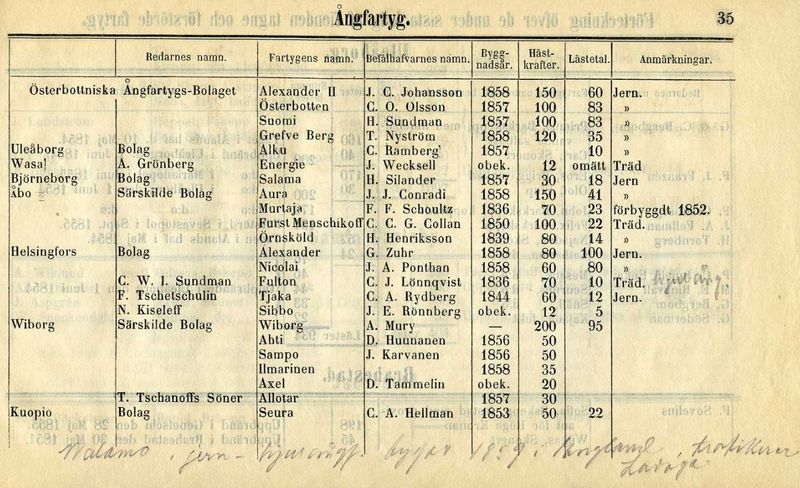 Ångfartyg. 35
Redarnes namn. Fartygens namn. Befälhafvarnes namn. Bygg-nadsår. Häst-krafter. Lästetal. Anmärkningar.
Österbottniska Ångfartygs-Bolaget Alexander II J. C. Johansson 1858 150 60 Jern.
Österbotten C. O. Olsson 1857 100 83 »
Suomi H. Sundman 1857 100 83 »
Grefve Berg T. Nyström 1858 120 35 »
Uleåborg Bolag Alku C. Ramberg 1857 10 »
Wasa A. Grönberg Energie J. Wecksell obek. 12 omätt Träd
Björneborg Bolag Salama H. Silander 1857 30 18 Jern
Åbo Särskilde Bolag Aura J. J. Conradi 1858 150 41 »
Murtaja F. F. Schoultz 1836 70 23 förbyggdt 1852.
Furst Menschikoff C. C. G. Collan 1850 100 22 Träd.
Örnsköld H. Henriksson 1839 80 14 »
Helsingfors Bolag Alexander G. Zuhr 1858 80 100 Jern.
Nicolai J. A. Ponthan 1858 60 80 »
C. W. I. Sundman Fulton C. J. Lönnqvist 1836 70 10 Träd. hjulång
F. Tschetschulin Tjaka C. A. Rydberg 1844 60 12 Jern.
N. Kiseleff Sibbo J. E. Rönnberg obek. 12 5
Wiborg Särskilde Bolag Wiborg A. Mury — 200 95
Ahti D. Huunanen 1856 50
Sampo J. Karvanen 1856 50
Ilmarinen 1858 35
Axel D. Tammelin obek. 20
T. Tschanoffs Söner Allotar 1857 30
Kuopio Bolag Seura C. A. Hellman 1853 50 22
Walamo, jern- 1859 i England, trafikerar
Ladoga